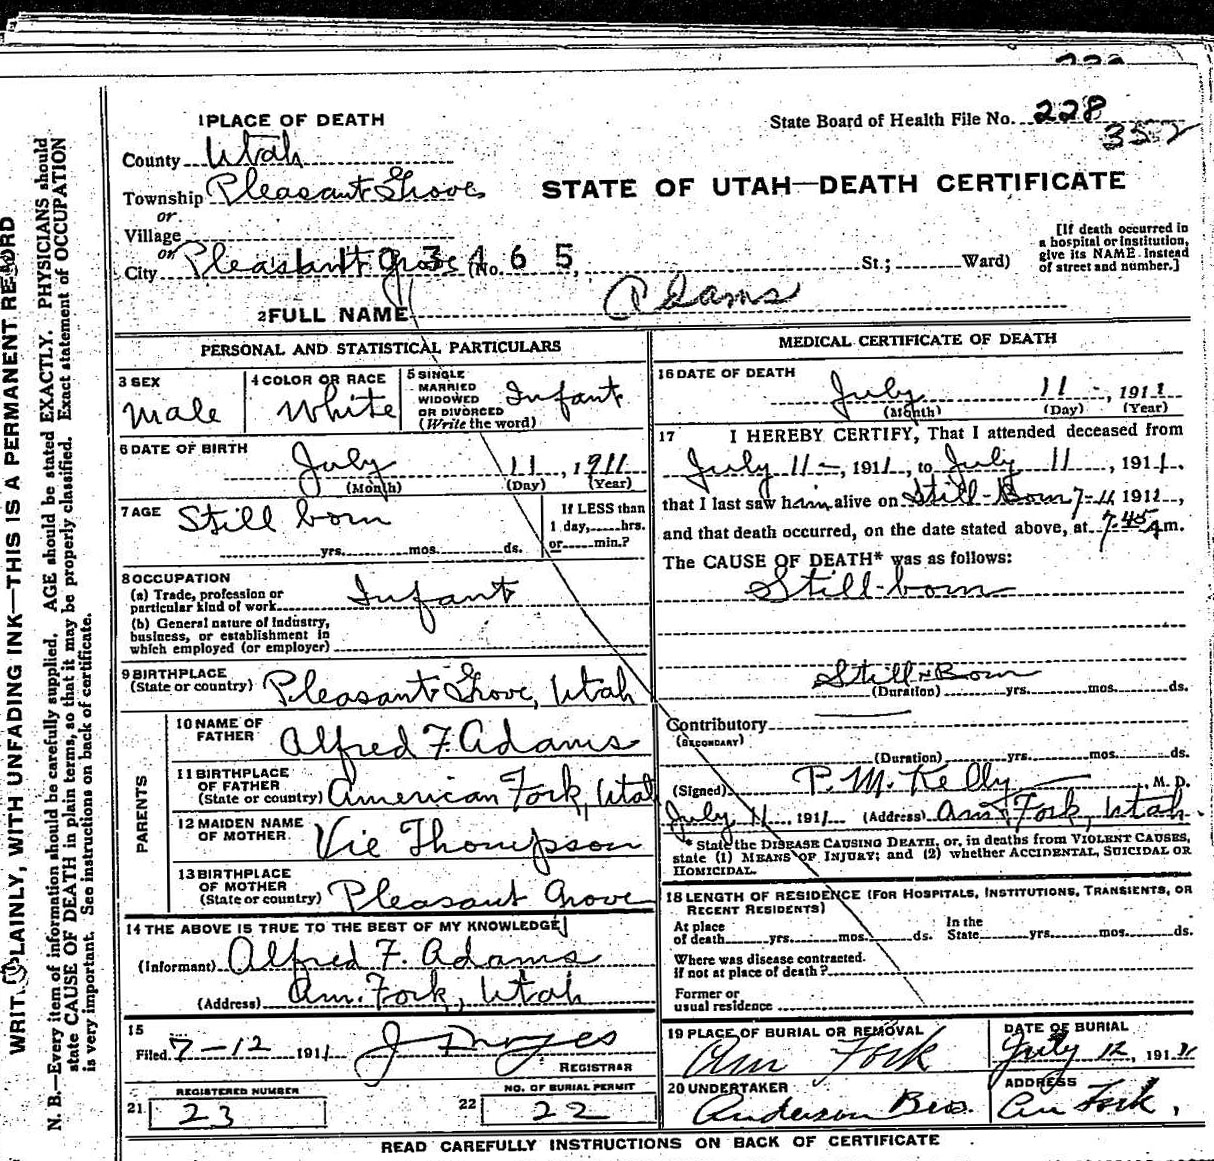 228
1 PLACE OF DEATH
State Board of Health File No. 228
352
County Utah
Township Pleasant Grove
STATE OF UTAH—DEATH CERTIFICATE
or
Village
or
City Pleasant Grove (No. St.; Ward)
1103465
[If death occurred in
a hospital or institution,
give its NAME instead
of street and number.]
2 FULL NAME Adams
PERSONAL AND STATISTICAL PARTICULARS
3 SEX
Male
4 COLOR OR RACE
White
5 SINGLE
MARRIED
WIDOWED
OR DIVORCED
(Write the word)
Infant
6 DATE OF BIRTH
July 11, 1911
(Month) (Day) (Year)
7 AGE
Still born
yrs. mos. ds.
If LESS than
1 day, hrs.
or min.?
8 OCCUPATION
(a) Trade, profession or
particular kind of work
Infant
(b) General nature of industry,
business, or establishment in
which employed (or employer)
9 BIRTHPLACE
(State or country) Pleasant Grove, Utah
PARENTS
10 NAME OF
FATHER
Alfred F. Adams
11 BIRTHPLACE
OF FATHER
(State or country) American Fork, Utah
12 MAIDEN NAME
OF MOTHER
Vie Thompson
13 BIRTHPLACE
OF MOTHER
(State or country) Pleasant Grove
14 THE ABOVE IS TRUE TO THE BEST OF MY KNOWLEDGE
(Informant) Alfred F. Adams
(Address) Am. Fork, Utah
15
Filed 7-12 1911
REGISTRAR
REGISTERED NUMBER
21 23
NO. OF BURIAL PERMIT
22 22
MEDICAL CERTIFICATE OF DEATH
16 DATE OF DEATH
July 11, 1911
(Month) (Day) (Year)
17 I HEREBY CERTIFY, That I attended deceased from
July 11, 1911, to July 11, 1911.
that I last saw him alive on Still-Born 7-11 1911,
and that death occurred, on the date stated above, at 7.45 A m.
The CAUSE OF DEATH* was as follows:
Still-born
Still-Born
(Duration) yrs. mos. ds.
Contributory
(SECONDARY)
(Duration) yrs. mos. ds.
(Signed) P. M. Kelly M. D.
July 11, 1911 (Address) Am. Fork, Utah.
* State the DISEASE CAUSING DEATH, or, in deaths from VIOLENT CAUSES,
state (1) MEANS OF INJURY; and (2) whether ACCIDENTAL, SUICIDAL OR
HOMICIDAL.
18 LENGTH OF RESIDENCE (FOR HOSPITALS, INSTITUTIONS, TRANSIENTS, OR
RECENT RESIDENTS)
At place
of death yrs. mos. ds.
In the
State yrs. mos. ds.
Where was disease contracted.
if not at place of death?
Former or
usual residence
19 PLACE OF BURIAL OR REMOVAL
Am Fork
DATE OF BURIAL
July 12, 1911
20 UNDERTAKER
Anderson Bros.
ADDRESS
Am Fork.
READ CAREFULLY INSTRUCTIONS ON BACK OF CERTIFICATE
WRITE PLAINLY, WITH UNFADING INK—THIS IS A PERMANENT RECORD
N. B.—Every item of information should be carefully supplied. AGE should be stated EXACTLY. PHYSICIANS should
state CAUSE OF DEATH in plain terms, so that it may be properly classified. Exact statement of OCCUPATION
is very important. See instructions on back of certificate.